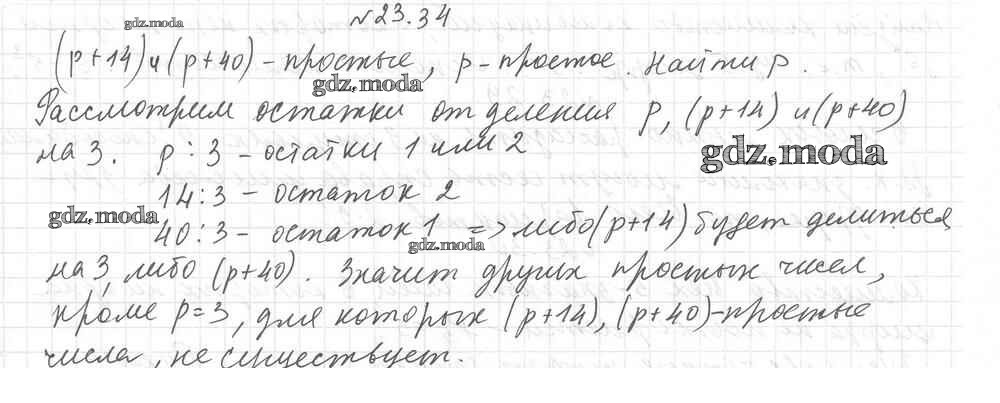 №23.34
gdz.moda
(р+14) и (р+40) – простые, р – простое. Найти р.
gdz.moda
Рассмотрим остатки от деления р, (р+14) и (р+40)
на 3. р : 3 – остатки 1 или 2
gdz.moda
14 : 3 – остаток 2
gdz.moda
40 : 3 – остаток 1 => либо (р+14) будет делиться
gdz.moda
на 3, либо (р+40). Значит других простых чисел,
кроме р=3, для которых (р+14), (р+40) – простые
числа, не существует.